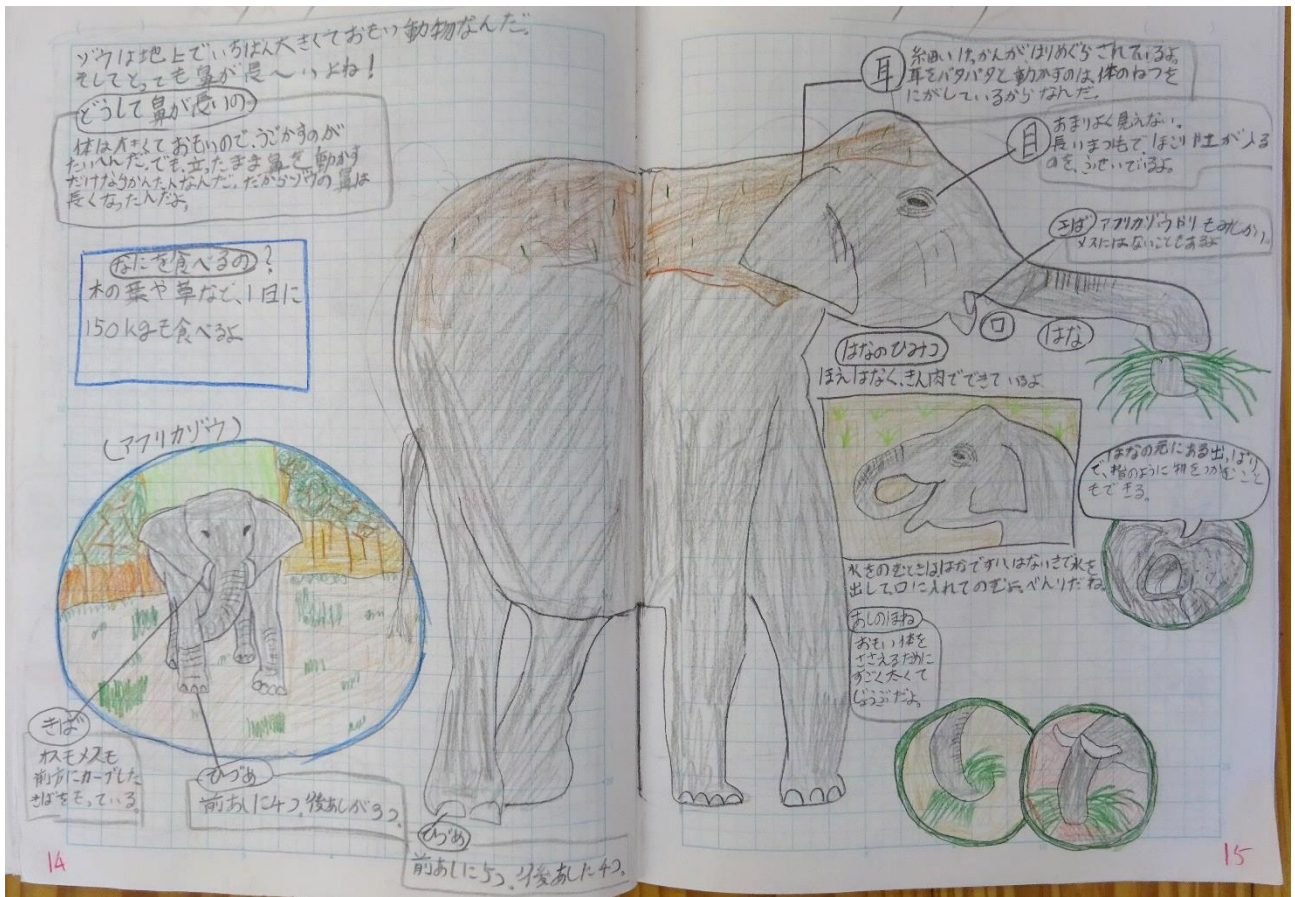 ゾウは地上でいちばん大きくておもい動物なんだ。
そしてとっても鼻が長〜いよね!
どうして鼻が長いの
体は大きくておもいので、うごかすのが
たいへんだ。でも、立ったまま鼻を、動かす
だけならかんたんなんだ。だからゾウの鼻は
長くなったんだよ。
なにを食べるの?
木の葉や草など、1日に
150kgも食べるよ
(アフリカゾウ)
きば
オスもメスも
前方にカーブした
きばをもっている。
ひづめ
前あしに4つ、後あしが3つ。
ひづめ
前あしに5つ、後あしに4つ。
14
耳
細いけっかんがはりめぐらされているよ。
耳をパタパタと動かすのは、体のねつを
にがしているからなんだ。
目
あまりよく見えない。
長いまつ毛で、ほこりや土が入る
のを、ふせいでいるよ。
きば
アフリカゾウよりもみじかい。
メスにはないこともあるよ
口
はな
はなのひみつ
ほねはなく、きん肉でできているよ
はなの先にある出っぱり
で、指のように物をつかむこと
もできる。
水をのむときははなですい、はなさきで水を
出して、口に入れてのむよ。べんりだね。
あしのほね
おもい体を
ささえるために
すごく太くて
じょうぶだよ。
15